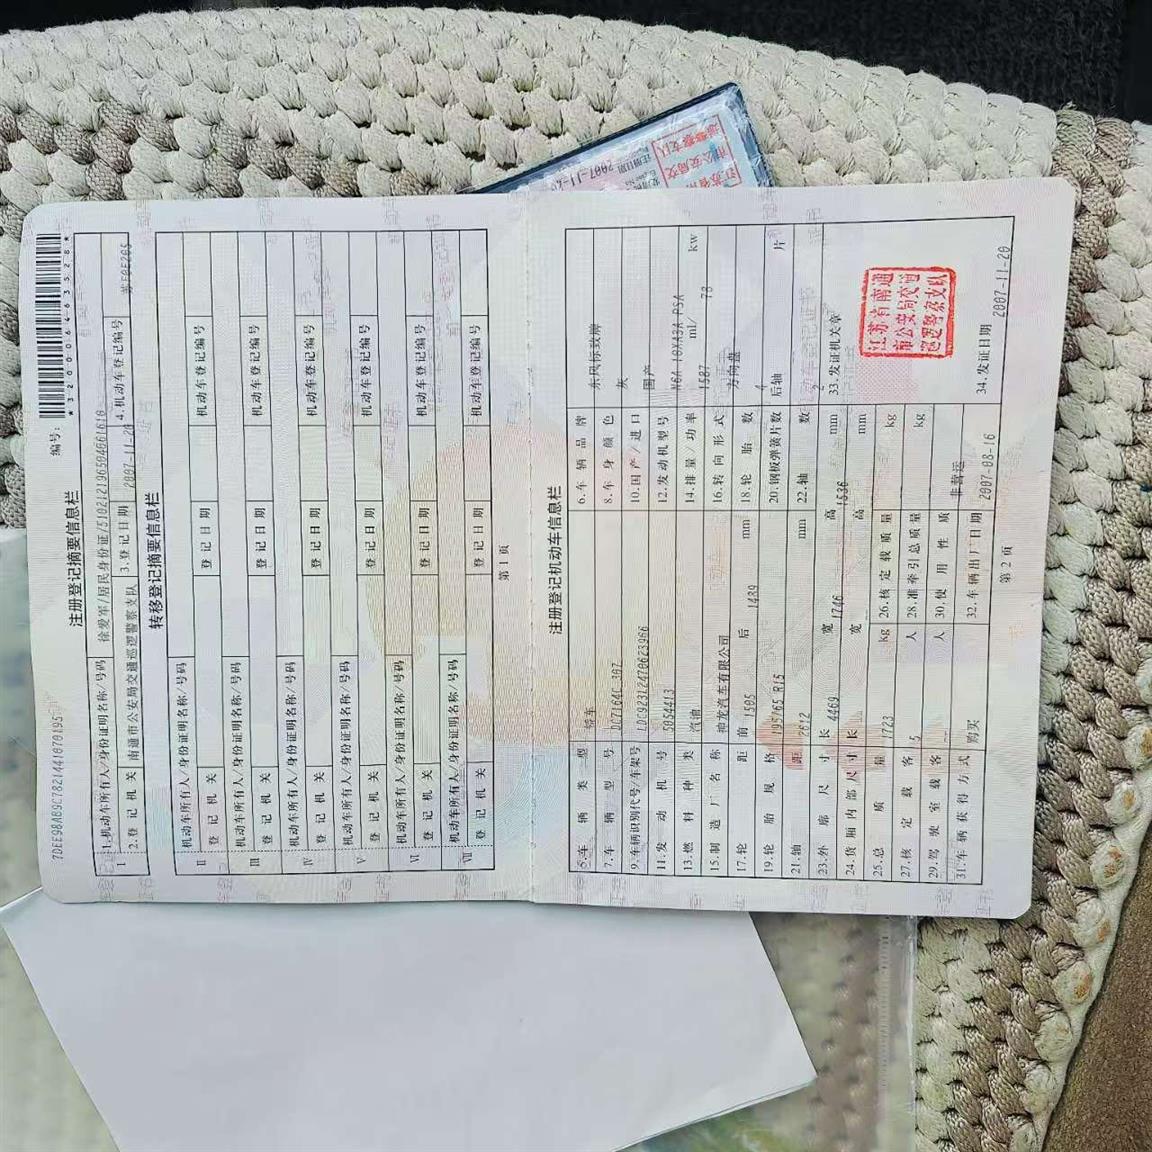 编号:
*320006463528*
7DEE98AB9C7821441070195
注册登记摘要信息栏
I
1.机动车所有人/身份证明名称/号码 徐爱军/居民身份证/510212196504061610
2.登记机关 南通市公安局交通巡逻警察支队 3.登记日期 2007-11-20 4.机动车登记编号
转移登记摘要信息栏
II 机动车所有人/身份证明名称/号码
登记机关 登记日期 机动车登记编号
III 机动车所有人/身份证明名称/号码
登记机关 登记日期 机动车登记编号
IV 机动车所有人/身份证明名称/号码
登记机关 登记日期 机动车登记编号
V 机动车所有人/身份证明名称/号码
登记机关 登记日期 机动车登记编号
VI 机动车所有人/身份证明名称/号码
登记机关 登记日期 机动车登记编号
VII 机动车所有人/身份证明名称/号码
登记机关 登记日期 机动车登记编号
第1页
注册登记机动车信息栏
5.车辆类型 轿车 6.车辆品牌 东风标致牌
7.车辆型号 DC7164C 307 8.车身颜色 灰
9.车辆识别代号/车架号 LDC923L2470623966 10.国产/进口 国产
11.发动机号 5054413 12.发动机型号 N6A 10XA3A PSA
13.燃料种类 汽油 14.排量/功率 1587 ml/ 78 kw
15.制造厂名称 神龙汽车有限公司 16.转向形式 方向盘
17.轮距 前 1505 后 1489 mm 18.轮胎数 4
19.轮胎规格 195/65 R15 20.钢板弹簧片数 后轴 片
21.轴距 2612 mm 22.轴数 2
23.外廓尺寸 长 4469 宽 1746 高 1536 mm 33.发证机关章
24.货厢内部尺寸 长 宽 高 mm
25.总质量 1723 kg 26.核定载质量 kg
27.核定载客 5 人 28.准牵引总质量 kg
29.驾驶室载客 人 30.使用性质 非营运
31.车辆获得方式 购买 32.车辆出厂日期 2007-08-16 34.发证日期 2007-11-20
江苏省南通
市公安局交通
巡逻警察支队
第2页
注册日期 2007-11-20
江苏省南
市公安局交